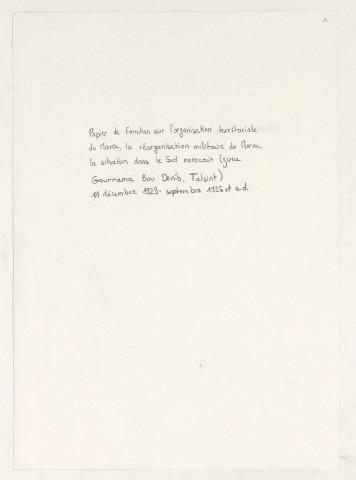 1
Papier de fonction sur l'organisation territoriale
du Maroc, la réorganisation militaire du Maroc
la situation dans le Sud marocain (zone
Gourrama Bou Denib, Talsint)
11 décembre 1923 - septembre 1926 et s.d.